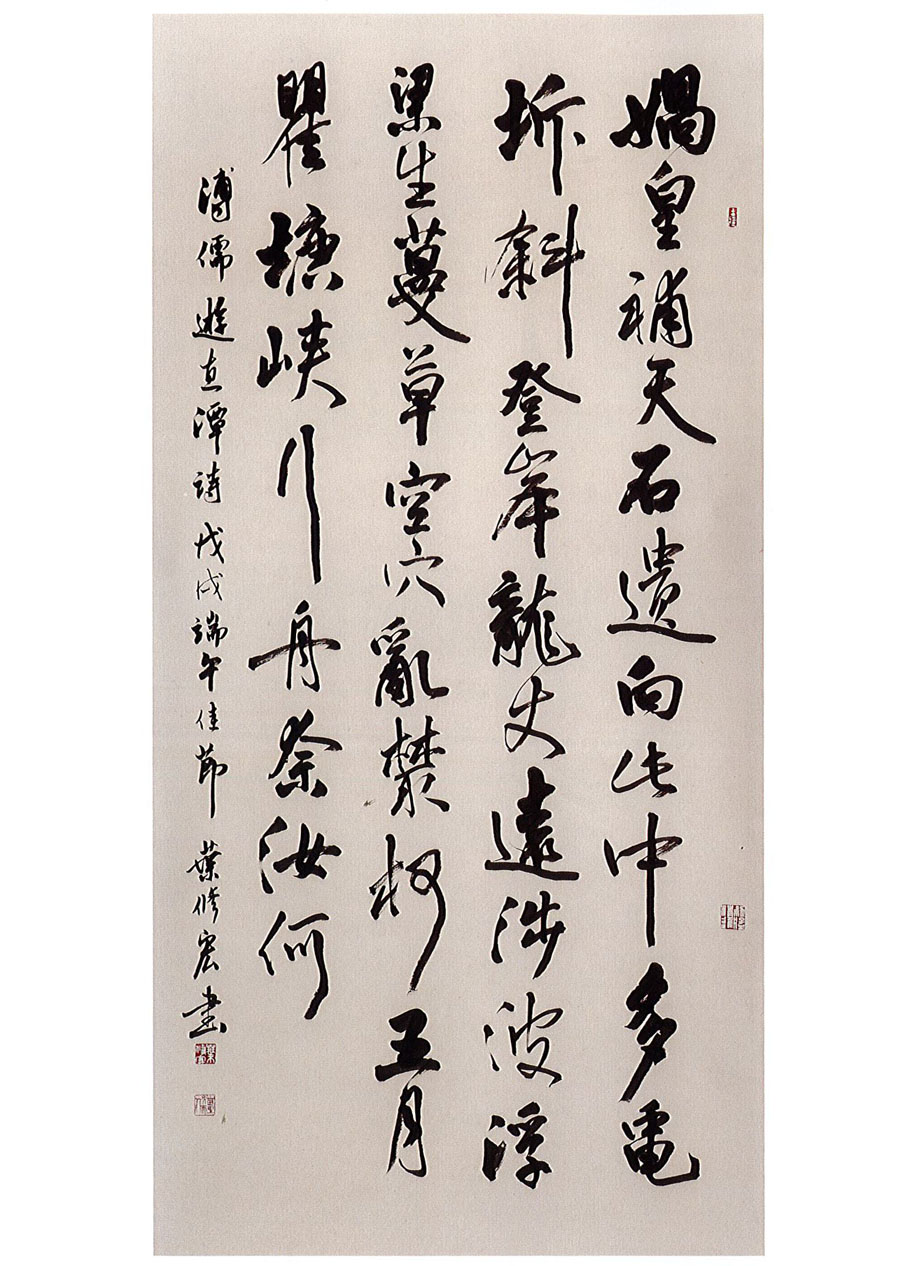 媧皇補天石遺向此中多龜
坼斜登岸龍文遠涉波浮
梁生蔓草空穴亂叢柯五月
瞿塘峽行舟奈汝何
溥儒遊直潭詩戊戌端午佳節 葉修宏書